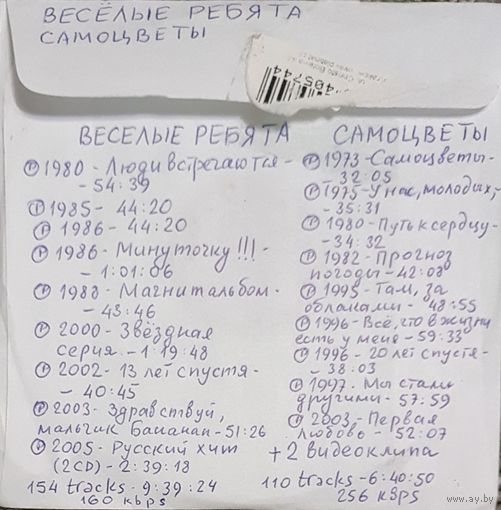 ВЕСЁЛЫЕ РЕБЯТА
САМОЦВЕТЫ
405744
ВЕСЕЛЫЕ РЕБЯТА
Ⓟ 1980 - Люди встречаются -
- 54:39
Ⓟ 1985 - 44:20
Ⓟ 1986 - 44:20
Ⓟ 1986 - Минуточку!!! -
- 1:01:06
Ⓟ 1988 - Магнит альбом -
- 43:46
Ⓟ 2000 - Звёздная
серия - 1:19:48
Ⓟ 2002 - 13 лет спустя -
- 40:45
Ⓟ 2003 - Здравствуй,
мальчик Бананан - 51:26
Ⓟ 2005 - Русский хит
(2CD) - 2:39:18
154 tracks - 9:39:24
160 kbps
САМОЦВЕТЫ
Ⓟ 1973 - Самоцветы -
- 32:05
Ⓟ 1975 - У нас, молодых, -
- 35:31
Ⓟ 1980 - Путь к сердцу -
- 34:32
Ⓟ 1982 - Прогноз
погоды - 42:08
Ⓟ 1995 - Там, за
облаками - 48:55
Ⓟ 1996 - Всё, что в жизни
есть у меня - 59:33
Ⓟ 1996 - 20 лет спустя -
- 38:03
Ⓟ 1997 - Мы стали
другими - 57:59
Ⓟ 2003 - Первая
любовь - 52:07
+ 2 видеоклипа
110 tracks - 6:40:50
256 kbps
www.ay.by